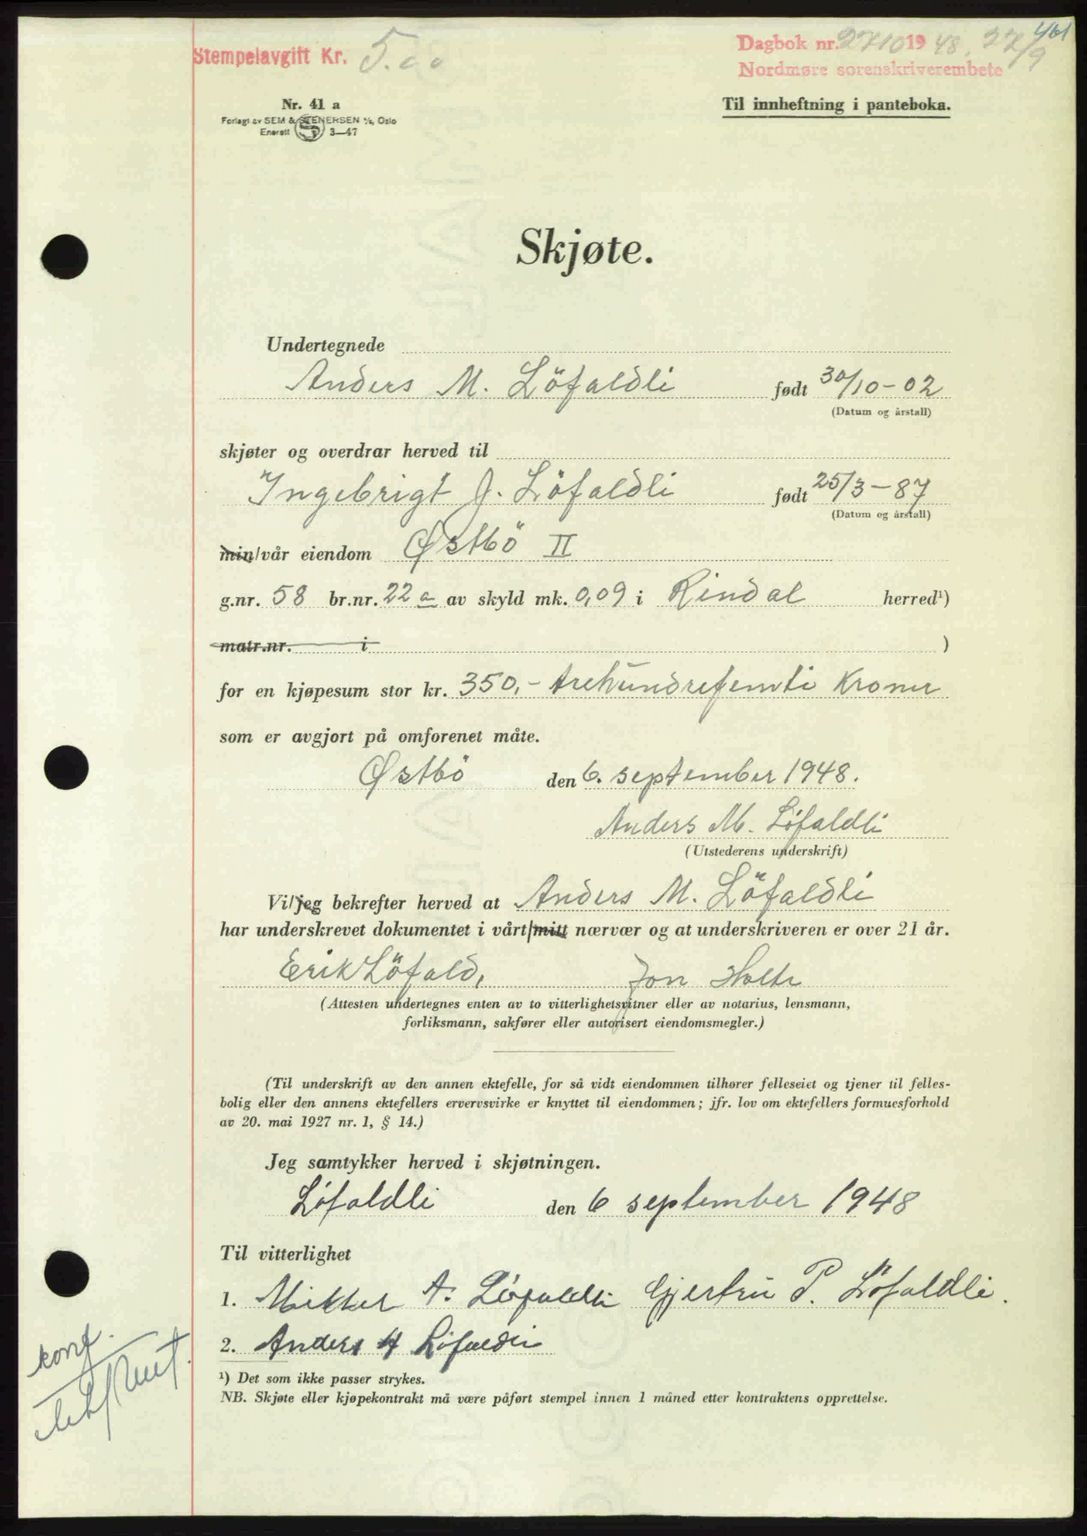 461
Stempelavgift Kr. 5.00
Dagbok nr. 2710 1948. 27/9
Nordmøre sorenskriverembete
Nr. 41 a
Forlagt av SEM & STENERSEN A/S, Oslo
Enerett S 3—47
Til innheftning i panteboka.
Skjøte.
Undertegnede
Anders M. Löfaldli født 30/10-02
(Datum og årstall)
skjøter og overdrar herved til
Ingebrigt J. Löfaldli født 25/3-87
(Datum og årstall)
min/vår eiendom Østbö II
g.nr. 58 br.nr. 22 a av skyld mk. 0,09 i Rindal herred¹)
matr.nr. i )
for en kjøpesum stor kr. 350,- trehundrefemti Kroner
som er avgjort på omforenet måte.
Østbö den 6. september 1948.
Anders M. Löfaldli
(Utstederens underskrift)
Vi/jeg bekrefter herved at Anders M. Löfaldli
har underskrevet dokumentet i vårt/mitt nærvær og at underskriveren er over 21 år.
Erik Löfald, Jon Holte
(Attesten undertegnes enten av to vitterlighetsvitner eller av notarius, lensmann,
forliksmann, sakfører eller autorisert eiendomsmegler.)
(Til underskrift av den annen ektefelle, for så vidt eiendommen tilhører felleseiet og tjener til felles-
bolig eller den annens ektefellers ervervsvirke er knyttet til eiendommen; jfr. lov om ektefellers formuesforhold
av 20. mai 1927 nr. 1, § 14.)
Jeg samtykker herved i skjøtningen.
Löfaldli den 6 september 1948
Til vitterlighet
1. A. Löfaldli Gjertru P. Löfaldli.
2. Anders Löfaldli
¹) Det som ikke passer strykes.
NB. Skjøte eller kjøpekontrakt må være påført stempel innen 1 måned etter kontraktens opprettelse.
konf.